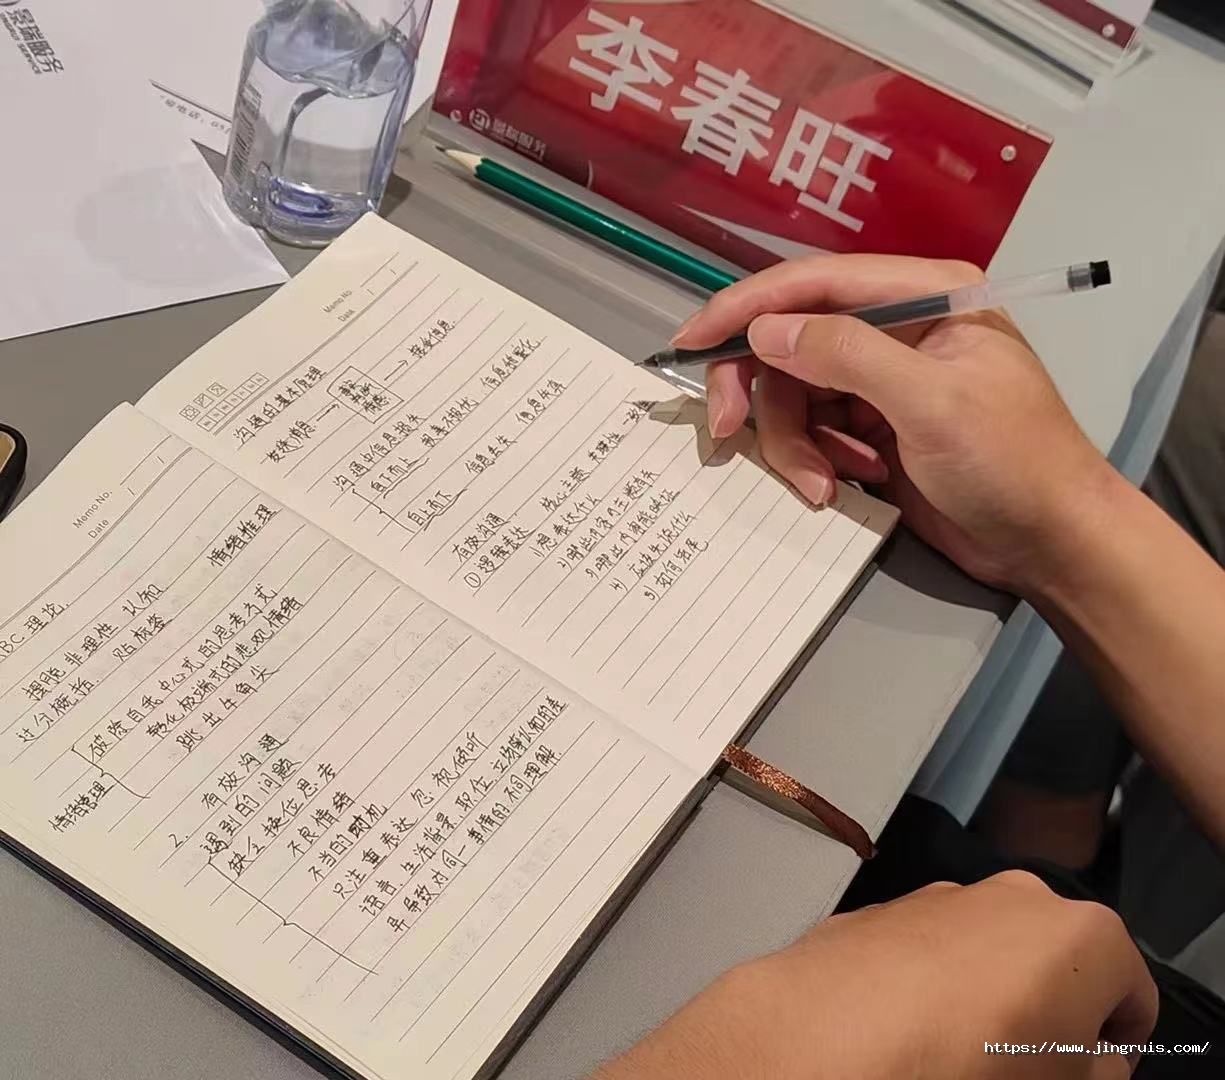 景瑞服务
李春旺
景瑞服务
Memo No. 1
Date 1
ABC 理论.
情绪推理
摆脱非理性认知
过分概括. 贴标签
情绪管理
破除自我中心式的思考方式
转化极端式的悲观情绪
跳出牛角尖
2. 有效沟通
遇到的问题
缺乏换位思考
不良情绪
不当的时机
只注重表达 忽视倾听
语言、生活背景、职位、立场等认知的差
异导致对同一事情的不同理解.
Memo No. 1
Date 1
沟通的基本原理
发送消息 → → 接受信息.
沟通中信息损失
自下而上 报喜不报忧, 信息
自上而下 信息丢失 信息失真
有效沟通
①逻辑表达 核心主题 关联性 一致性
1) 想表达什么
2) 哪些内容与主题有关
3) 哪些内容能映证
4) 应该先说什么
5) 如何结尾
https://www.jingruis.com/